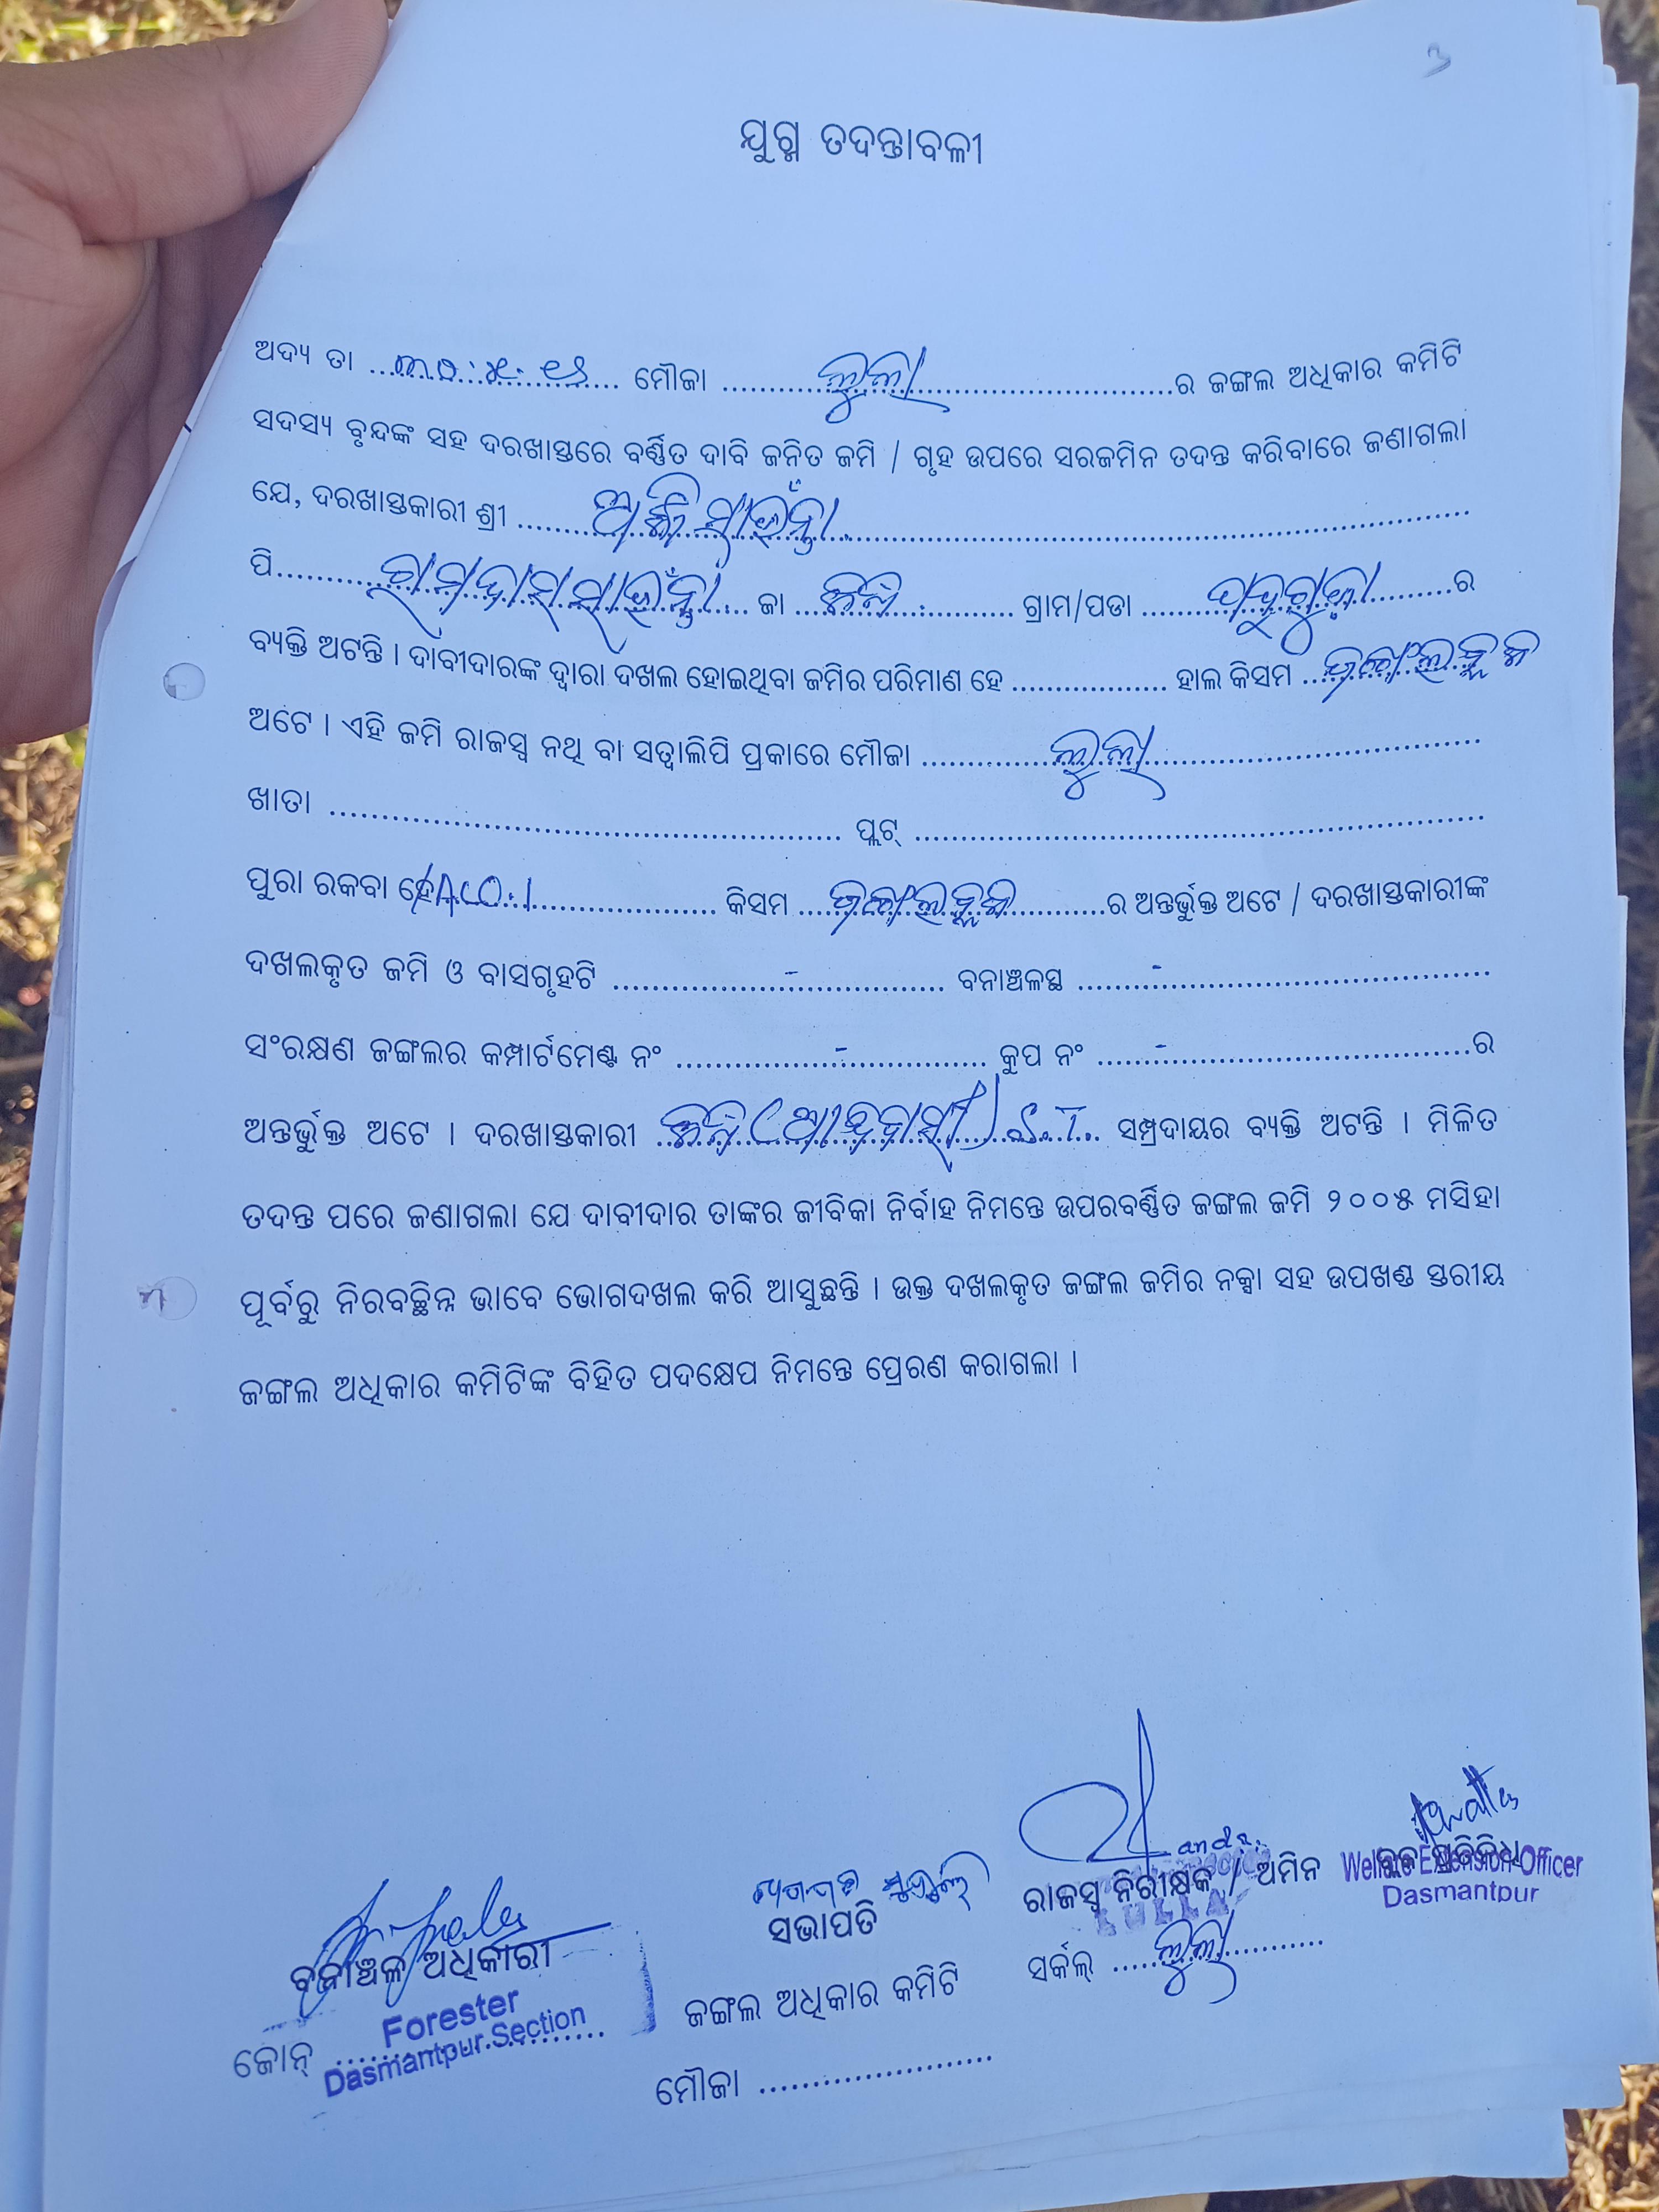 ୬
ଯୁଗ୍ମ ତଦନ୍ତାବଳୀ
ଅଦ୍ୟ ତା .................................... ମୌଜା ........ଲୁଲା........ର ଜଙ୍ଗଲ ଅଧିକାର କମିଟି
ସଦସ୍ୟ ବୃନ୍ଦଙ୍କ ସହ ଦରଖାସ୍ତରେ ବର୍ଣ୍ଣିତ ଦାବି ଜନିତ ଜମି / ଗୃହ ଉପରେ ସରଜମିନ ତଦନ୍ତ କରିବାରେ ଜଣାଗଲା
ଯେ, ଦରଖାସ୍ତକାରୀ ଶ୍ରୀ ........ସାଉଁନ୍ତା........
ପି........ରାମଦାସ୍ ସାଉଁନ୍ତା........ ଜା ................ ଗ୍ରାମ/ପଡା ................ର
ବ୍ୟକ୍ତି ଅଟନ୍ତି । ଦାବୀଦାରଙ୍କ ଦ୍ୱାରା ଦଖଲ ହୋଇଥିବା ଜମିର ପରିମାଣ ହେ ................ ହାଲ କିସମ ........
ଅଟେ । ଏହି ଜମି ରାଜସ୍ୱ ନଥି ବା ସତ୍ୱାଲିପି ପ୍ରକାରେ ମୌଜା ........ଲୁଲା........
ଖାତା ................................ ପ୍ଲଟ୍ ................................
ପୁରା ରକବା ହେ................ କିସମ ................ର ଅନ୍ତର୍ଭୁକ୍ତ ଅଟେ / ଦରଖାସ୍ତକାରୀଙ୍କ
ଦଖଲକୃତ ଜମି ଓ ବାସଗୃହଟି ........-........ ବନାଞ୍ଚଳସ୍ଥ ........-........
ସଂରକ୍ଷଣ ଜଙ୍ଗଲର କମ୍ପାର୍ଟମେଣ୍ଟ ନଂ ........-........ କୁପ ନଂ ........-........ର
ଅନ୍ତର୍ଭୁକ୍ତ ଅଟେ । ଦରଖାସ୍ତକାରୀ ........(ଆଦିବାସୀ) S.T... ସମ୍ପ୍ରଦାୟର ବ୍ୟକ୍ତି ଅଟନ୍ତି । ମିଳିତ
ତଦନ୍ତ ପରେ ଜଣାଗଲା ଯେ ଦାବୀଦାର ତାଙ୍କର ଜୀବିକା ନିର୍ବାହ ନିମନ୍ତେ ଉପରବର୍ଣ୍ଣିତ ଜଙ୍ଗଲ ଜମି ୨୦୦୫ ମସିହା
ପୂର୍ବରୁ ନିରବଚ୍ଛିନ୍ନ ଭାବେ ଭୋଗଦଖଲ କରି ଆସୁଛନ୍ତି । ଉକ୍ତ ଦଖଲକୃତ ଜଙ୍ଗଲ ଜମିର ନକ୍ସା ସହ ଉପଖଣ୍ଡ ସ୍ତରୀୟ
ଜଙ୍ଗଲ ଅଧିକାର କମିଟିଙ୍କ ବିହିତ ପଦକ୍ଷେପ ନିମନ୍ତେ ପ୍ରେରଣ କରାଗଲା ।
ବନାଞ୍ଚଳ ଅଧିକାରୀ
Forester
Dasmantpur Section
ଜୋନ୍ ................
ସଭାପତି
ଜଙ୍ଗଲ ଅଧିକାର କମିଟି
ମୌଜା ................
ରାଜସ୍ୱ ନିରୀକ୍ଷକ / ଅମିନ
LULLA
ସର୍କଲ୍ ....ଲୁଲା....
Welfare Extension Officer
Dasmantpur